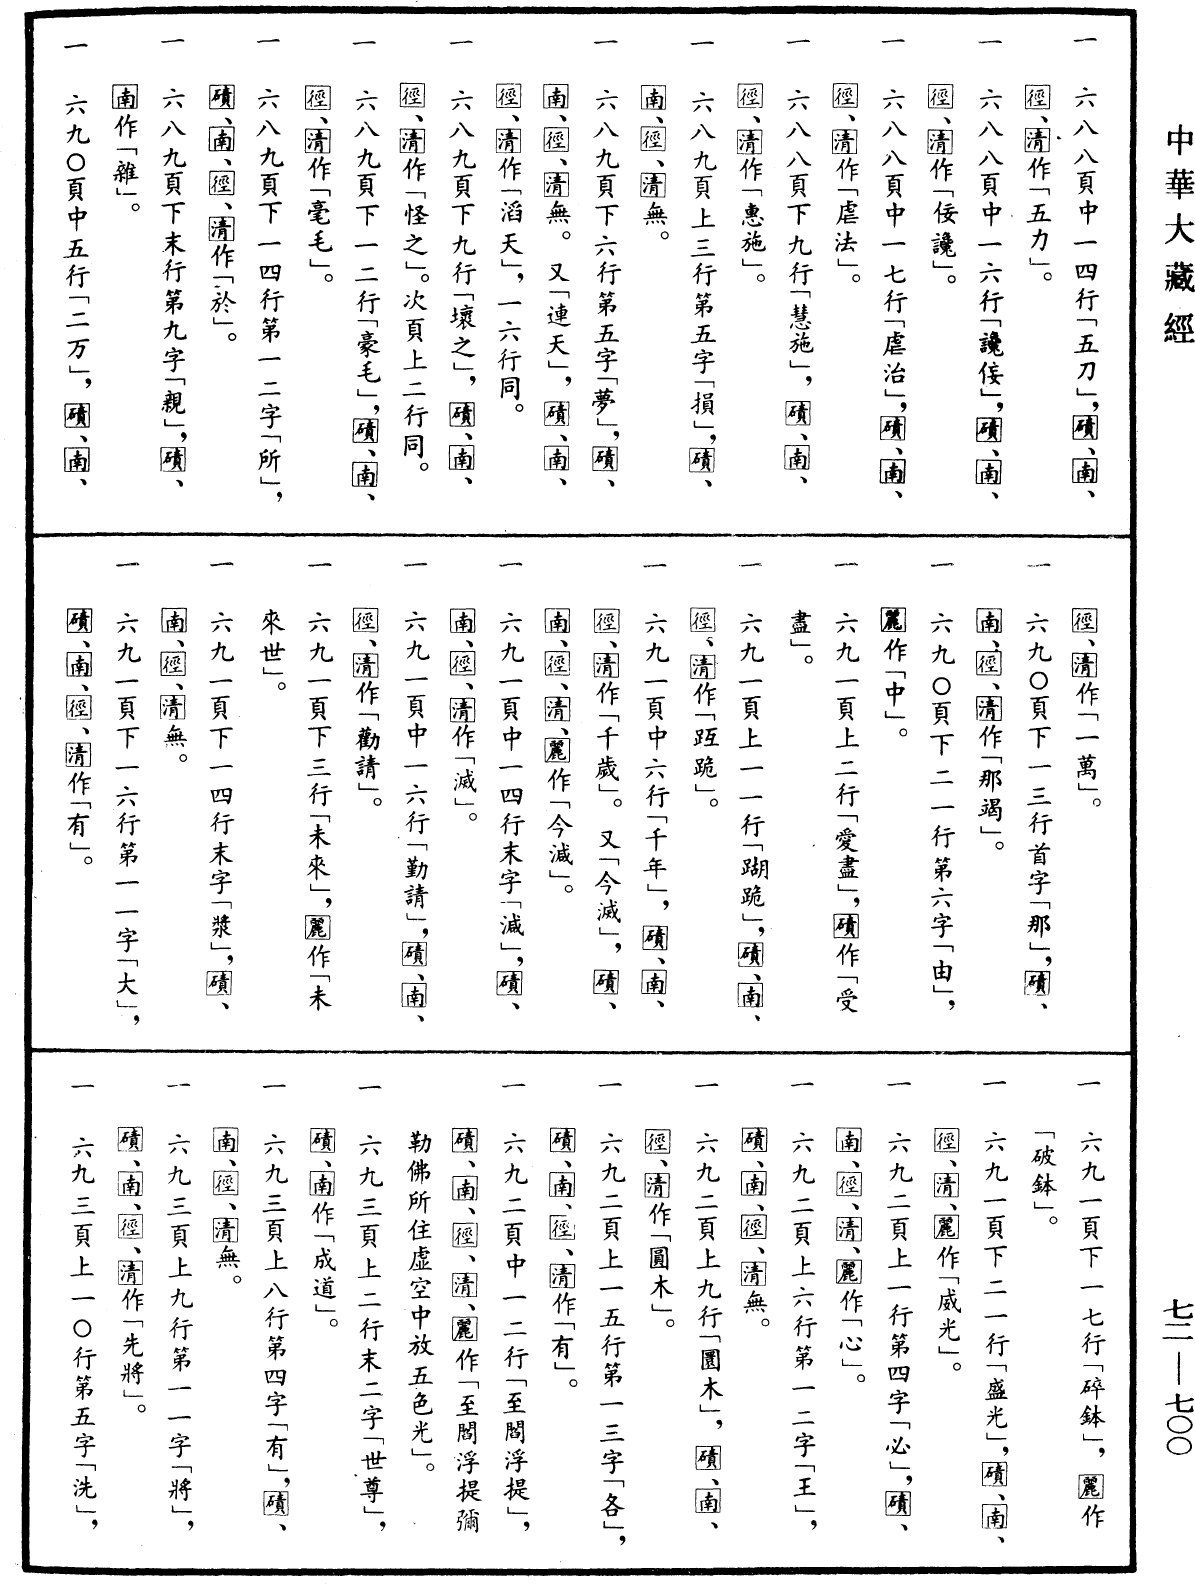 中華大藏經
一 六八八頁中一四行「五刀」，磧、南、
徑、清作「五力」。
一 六八八頁中一六行「讒佞」，磧、南、
徑、清作「佞讒」。
一 六八八頁中一七行「虐治」，磧、南、
徑、清作「虐法」。
一 六八八頁下九行「慧施」，磧、南、
徑、清作「惠施」。
一 六八九頁上三行第五字「損」，磧、
南、徑、清無。
一 六八九頁下六行第五字「夢」，磧、
南、徑、清無。又「連天」，磧、南、
徑、清作「滔天」，一六行同。
一 六八九頁下九行「壞之」，磧、南、
徑、清作「怪之」。次頁上二行同。
一 六八九頁下一二行「豪毛」，磧、南、
徑、清作「毫毛」。
一 六八九頁下一四行第一二字「所」，
磧、南、徑、清作「於」。
一 六八九頁下末行第九字「親」，磧、
南作「雜」。
一 六九〇頁中五行「二万」，磧、南、
徑、清作「一萬」。
一 六九〇頁下一三行首字「那」，磧、
南、徑、清作「那竭」。
一 六九〇頁下二一行第六字「由」，
麗作「中」。
一 六九一頁上二行「愛盡」，磧作「受
盡」。
一 六九一頁上一一行「𨄔跪」，磧、南、
徑、清作「䟦跪」。
一 六九一頁中六行「千年」，磧、南、
徑、清作「千歲」。又「今滅」，磧、
南、徑、清、麗作「今減」。
一 六九一頁中一四行末字「減」，磧、
南、徑、清作「滅」。
一 六九一頁中一六行「勤請」，磧、南、
徑、清作「勸請」。
一 六九一頁下三行「未來」，麗作「未
來世」。
一 六九一頁下一四行末字「漿」，磧、
南、徑、清無。
一 六九一頁下一六行第一一字「大」，
磧、南、徑、清作「有」。
一 六九一頁下一七行「碎鉢」，麗作
「破鉢」。
一 六九一頁下二一行「盛光」，磧、南、
徑、清、麗作「威光」。
一 六九二頁上一行第四字「必」，磧、
南、徑、清、麗作「心」。
一 六九二頁上六行第一二字「王」，
磧、南、徑、清無。
一 六九二頁上九行「圜木」，磧、南、
徑、清作「圓木」。
一 六九二頁上一五行第一三字「各」，
磧、南、徑、清作「有」。
一 六九二頁中一二行「至閻浮提」，
磧、南、徑、清、麗作「至閻浮提彌
勒佛所住虛空中放五色光」。
一 六九三頁上二行末二字「世尊」，
磧、南作「成道」。
一 六九三頁上八行第四字「有」，磧、
南、徑、清無。
一 六九三頁上九行第一一字「將」，
磧、南、徑、清作「先將」。
一 六九三頁上一〇行第五字「洗」，
七二—七〇〇